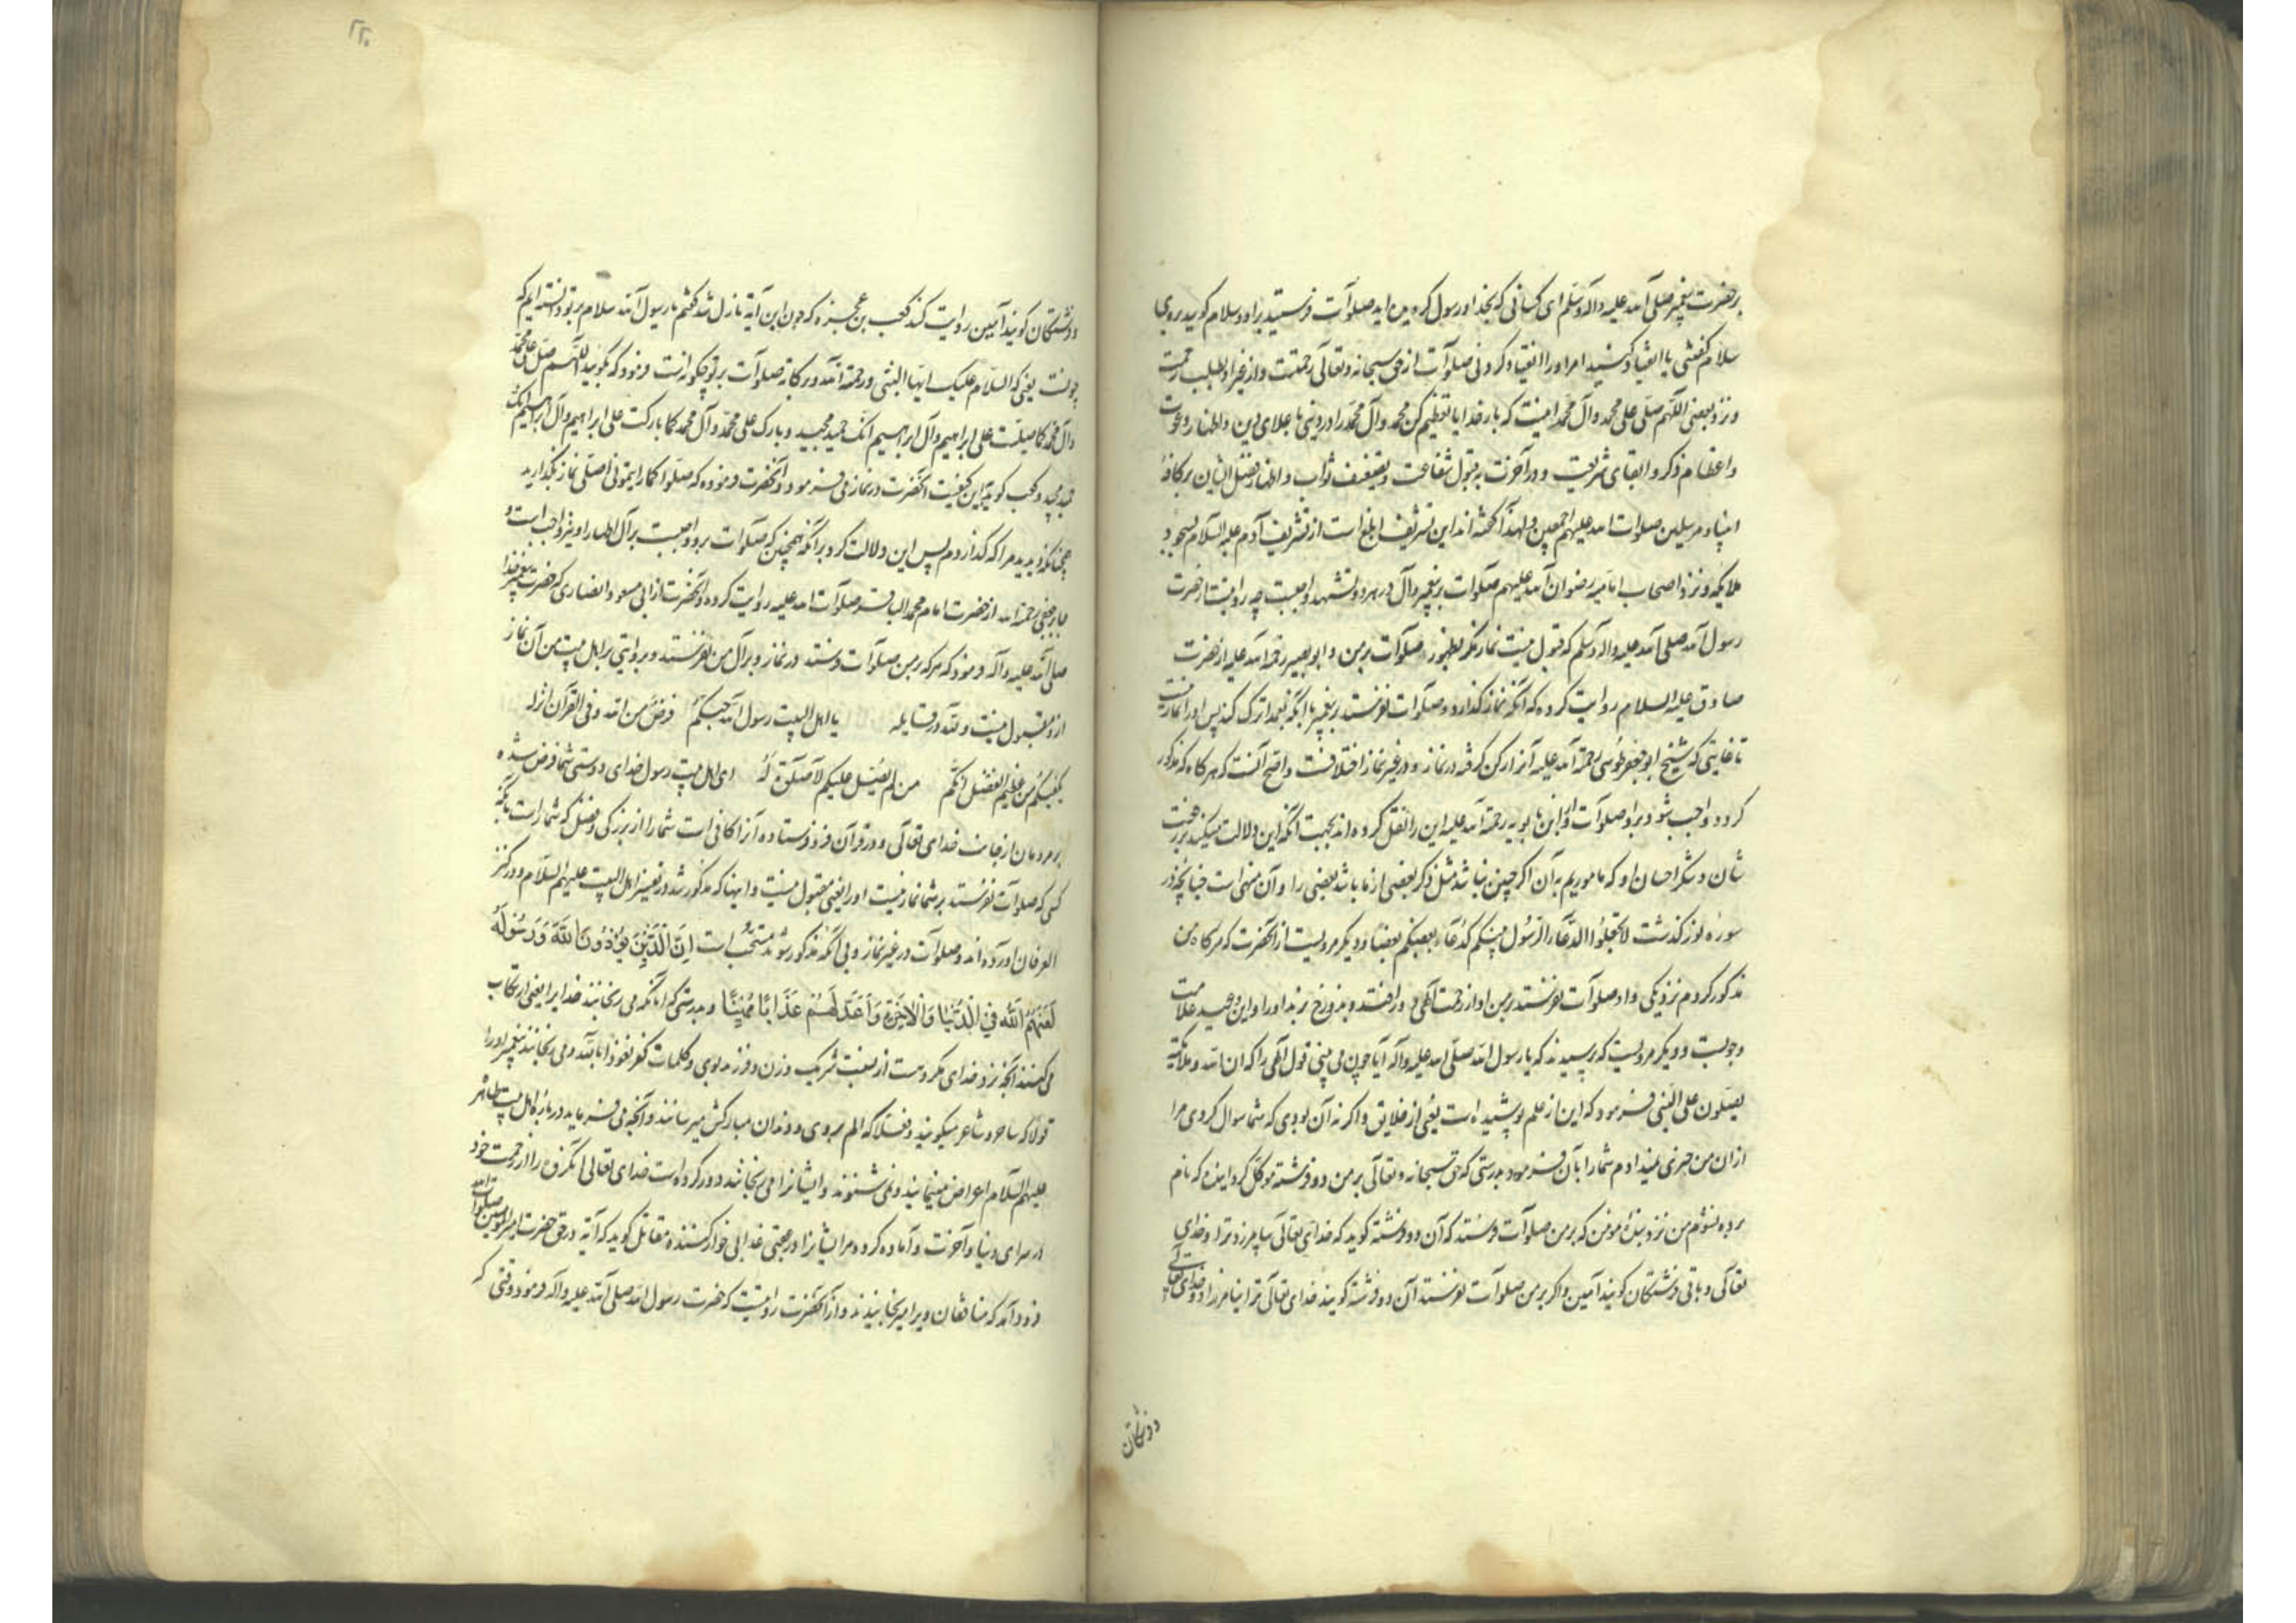 بر حضرت پیغمبر صلی الله علیه و اله و سلم ای کسانی که بخدا و رسول کرویده‌اید صلوات فرستید بر او و سلام کویید بروی
سلام کفتنی یا انقیاد کنید امر او را انقیاد کردنی صلوات از حق سبحانه و تعالی رحمتست و از غیر او طلب رحمت
و نزد بعضی اللهم صلی علی محمد و آل محمد اینست که بار خدایا تعظیم کن محمد و آل محمد را در دنیی باعلای دین و اظهار دعوت
و اعظام ذکر و ابقای شریعت و در آخرت به قبول شفاعت و تضعیف ثواب و اظهار فضل ایشان بر کافهٔ
انبیا و مرسلین صلوات الله علیهم اجمعین و لهذا گفته‌اند این تشریف ابلغ است از تشریف آدم علیه السلام بسجود
ملایکه و نزد اصحاب امامیه رضوان الله علیهم صلوات بر پیغمبر و آل در هر دو تشهد واجبست چه روایتست از حضرت
رسول الله صلی الله علیه و اله و سلم که قبول نیست نماز مکر بطهور و صلوات بر من و ابو بصیر رحمه الله علیه از حضرت
صادق علیه السلام روایت کرده که آنکه نماز کذارد و صلوات نفرستد بر پیغمبر با آنکه بعمد ترک کند پس او را نماز نیست
تا غایتی که شیخ ابو جعفر طوسی رحمة الله علیه آنرا رکن کرفته در نماز و در غیر نماز اختلافست و اصح آنست که هر کاه که مذکور
کردد واجب شود بر او صلوات و ابن بابویه رحمة الله علیه این را نقل کرده‌اند بجهت آنکه این دلالت میکند بر رفعت
شان و شکر احسان او که ماموریم به آن اکر چنین نباشد مثل ذکر بعضی از ما باشد بعضی را و آن منهی است چنانچه در
سورهٔ نور کذشت لا تجعلوا الدعاء الرسول بینکم کدعاء بعضکم بعضا و دیکر مرویست از آنحضرت که هر کاه من
مذکور کردم نزد یکی و او صلوات نفرستد بر من او از رحمت الهی دور افتد و بدوزخ برند او را و این وعید علامت
وجوبست و دیکر مرویست که پرسیدند که یا رسول الله صلی الله علیه و آله آیا چون می بینی قول الهی را که ان الله و ملائکته
یصلون علی النبی فرمود که این از علم پوشیده است یعنی از خلایق و اکر نه آن بودی که شما سوال کردی مرا
از ان من خبر نمیدادم شما را بآن فرمود بدرستی که حق سبحانه و تعالی بر من دو فرشته موکل کردانیده که نام
برده نشوم من نزد بندهٔ مومن که بر من صلوات فرستد که آن دو فرشته کوید که خدای تعالی بیامرزد ترا و خدای
تعالی و باقی فرشتکان کویند آمین و اکر بر من صلوات نفرستد آن دو فرشته کویند خدای تعالی ترا نیامرزاد و خدای تعالی
و فرشتکان
۲۲۰
و فرشتکان کویند آمین روایت کند کعب بن عجزه که چون این آیة نازل شد کفتم یا رسول الله سلام بر تو دانسته‌ایم که
چونست یعنی که السلام علیک ایها النبی و رحمة الله و برکاته صلوات بر تو چکونه است فرمود که بکویید اللهم صل علی محمد
و آل محمد کما صلیت علی ابراهیم و آل ابراهیم انک حمید مجید و بارک علی محمد و آل محمد کما بارکت علی ابراهیم و آل ابراهیم انک
حمید مجید و کعب کوید این کیفیت آنحضرت در نماز می فرمود و آنحضرت فرموده که صلوا کما رایتمونی اصلی نماز بکذارید
همچنانکه دیدید مرا که کذاردم پس این دلالت کرد بر آنکه همچنین که صلوات برو واجبست بر آل اطهار او نیز واجب است و
جابر جعفی رحمة الله از حضرت امام محمد الباقر صلوات الله علیه روایت کرده و آنحضرت از ابی مسعود انصاری که حضرت پیغمبر خدا
صلی الله علیه و آله فرمود که هر که بر من صلوات فرستد در نماز و بر آل من نفرستد و بروایتی بر اهل بیت من آن نماز
از و مقبول نیست و لله در قایله یا اهل البیت رسول الله حبکم فرض من الله و فی القرآن انزله
یکفیکم من عظیم الفضل انکم من لم یصل علیکم لا صلوة له ای اهل بیت رسول خدای دوستی شما فرض شده
بر مردمان از جانب خدای تعالی و در قرآن فرو فرستاده آنرا کافی است شما را از بزرکی و فضل که شما راست بآنکه
کسی که صلوات نفرستد بر شما نماز نیست او را یعنی مقبول نیست و اینها که مذکور شد در تفسیر اهل البیت علیهم السلام و در کنز
العرفان آورده‌اند و صلوات در غیر نماز و بی آنکه مذکور شود مستحب است اِنَّ الَّذِینَ یُؤْذُونَ اللَّهَ وَ رَسُولَهُ
لَعَنَهُمُ اللَّهُ فِی الدُّنْیَا وَ الْآخِرَةِ وَ أَعَدَّ لَهُمْ عَذَابًا مُهِینًا و بدرستی که آنانکه می رنجانند خدایرا یعنی ارتکاب
می کنند آنچه نزد خدای مکروهست از نسبت شریک و زن و فرزند بوی و کلمات کفر نعوذ بالله و می رنجانند پیغمبر او را
قولا که ساحر و شاعر میکویند و فعلا که الم بروی و دندان مبارکش میرسانند و آنچه می فرماید در بارهٔ اهل بیت طاهر
علیهم السلام اعراض مینمایند و نمی شنوند و ایشانرا می رنجانند دور کرده است خدای تعالی آنکروه را از رحمت خود
در سرای دنیا و آخرت و آماده کرده مر ایشانرا در عقبی عذابی خوار کننده مقاتل کوید که آیة در حق حضرت امیر المؤمنین صلوات الله
فرود آمد که منافقان ویرا میرنجانیدند و از آنحضرت روایتست که حضرت رسول الله صلی الله علیه و آله فرمود وقتی که